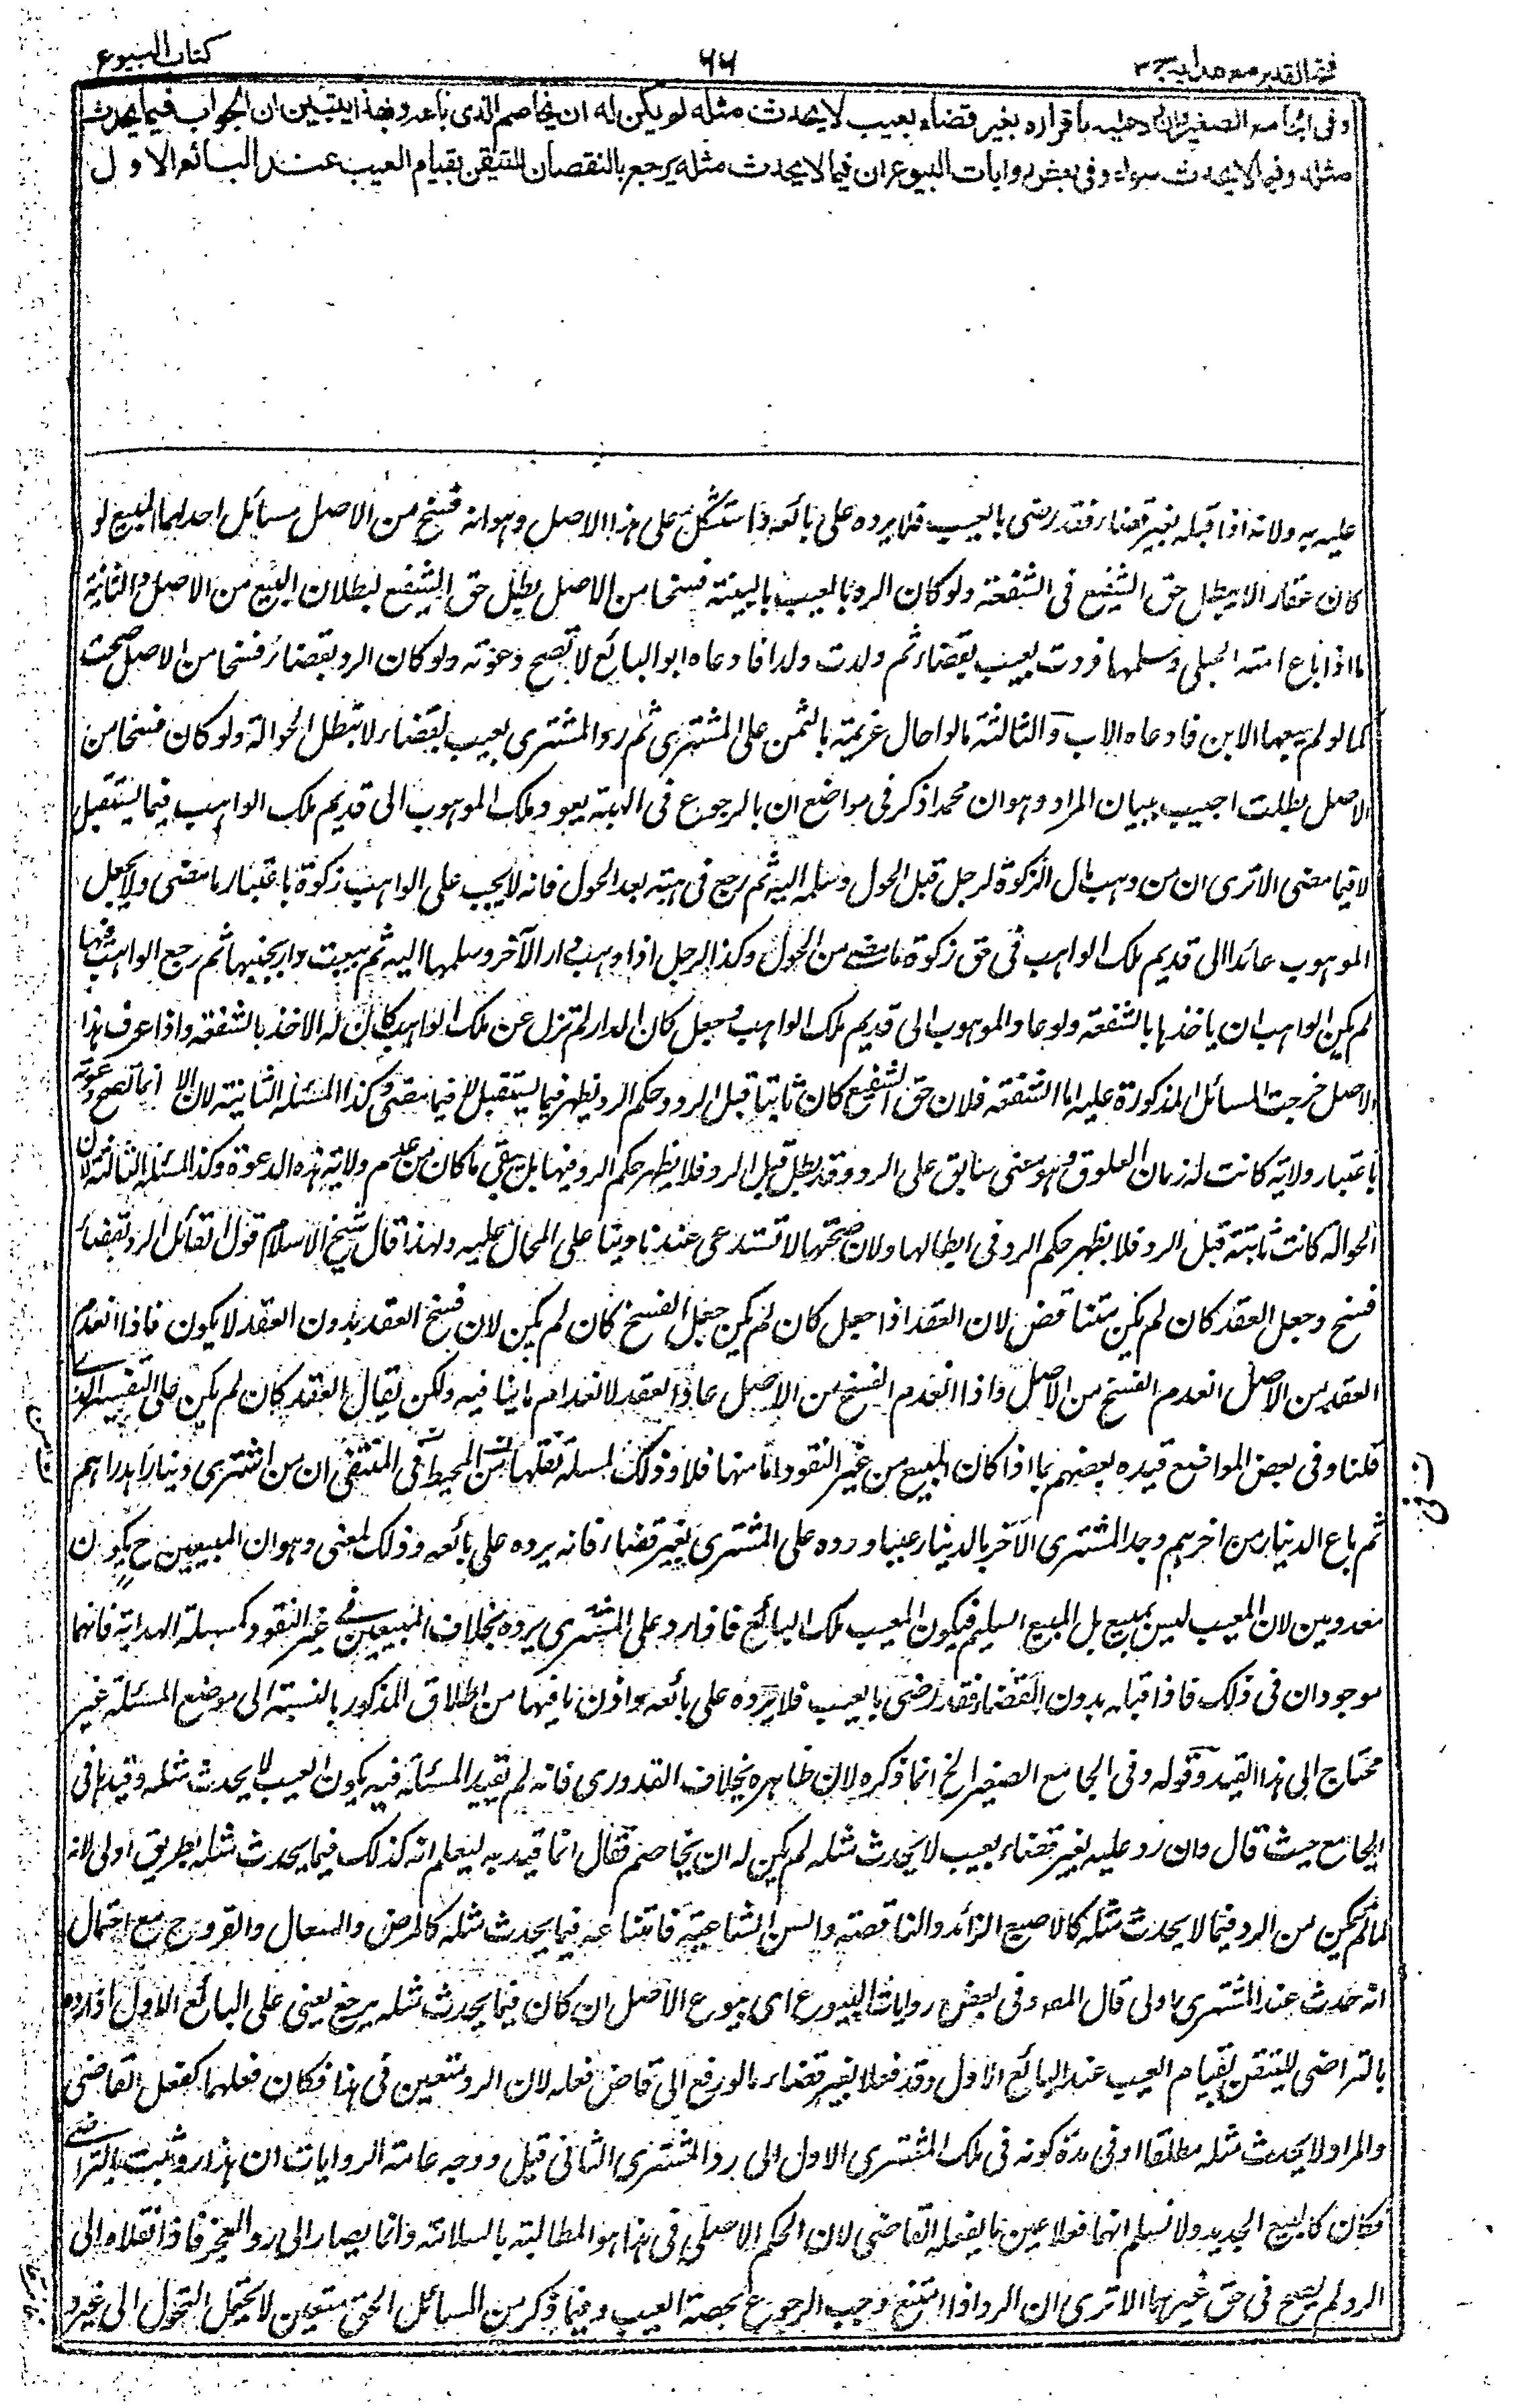 فتح القدير مع هدايه ج ٣
٦٦
كتاب البيوع
وفى الجامع الصغير ان رد عليه باقراره بغير قضاء بعيب لا يحدث مثله لم يكن له ان يخاصم الذى باعه وبهذا يتبين ان الجواب فيما يحدث
مثله وفيما لا يحدث سواء وفى بعض روايات البيوع ان فيما لا يحدث مثله يرجع بالنقصان للتيقن بقيام العيب عند البائع الاول
عليه به ولانه اذا قبله بغير قضاء فقد رضى بالعيب فلا يرده على بائعه واستشكل على هذا الاصل وهو انه فسخ من الاصل مسائل احدها المبيع لو
كان عقارا لا يبطل حق الشفيع فى الشفعة ولو كان الرد بالعيب بالبينة فسخا من الاصل بطل حق الشفيع لبطلان البيع من الاصل والثانية
ما اذا باع امته الحبلى وسلمها فردت بعيب بقضاء ثم ولدت ولدا فادعاه ابو البائع لا تصح دعوته ولو كان الرد بقضاء فسخا من الاصل صحت
كما لو لم يبعها الابن فادعاه الاب والثالثة ما لو احال غريمه بالثمن على المشترى ثم رد المشترى بعيب بقضاء لا تبطل الحوالة ولو كان فسخا من
الاصل بطلت اجيب ببيان المراد وهو ان محمدا ذكر فى مواضع ان بالرجوع فى الهبة يعود ملك الموهوب الى قديم ملك الواهب فيما يستقبل
لا فيما مضى الا ترى ان من وهب مال الزكوة لرجل قبل الحول وسلمه اليه ثم رجع فى هبته بعد الحول فانه لا يجب على الواهب زكوة باعتبار ما مضى ولا يجعل
الموهوب عائدا الى قديم ملك الواهب فى حق زكوة ما مضى من الحول وكذا الرجل اذا وهب دارا لآخر وسلمها اليه ثم بيعت دار بجنبها ثم رجع الواهب فيها
لم يكن الواهب ان ياخذها بالشفعة ولو عاد الموهوب الى قديم ملك الواهب وجعل كان الدار لم تزل عن ملك الواهب كان له الاخذ بالشفعة واذا عرف هذا
الاصل خرجت المسائل المذكورة عليه اما الشفعة فلان حق الشفيع كان ثابتا قبل الرد وحكم الرد يظهر فيما يستقبل لا فيما مضى وكذا المسئلة الثانية لان الاب انما تصح دعوته
باعتبار ولاية كانت له زمان العلوق وهو معنى سابق على الرد وقد بطل قبل الرد فلا يظهر حكم الرد فيها بل يبقى ما كان من عدم ولاية هذه الدعوة وكذا المسئلة الثالثة لان
الحوالة كانت ثابتة قبل الرد فلا يظهر حكم الرد فى ابطالها ولان صحتها لا تستدعى عندنا دينا على المحال عليه ولهذا قال شيخ الاسلام قول القائل الرد بقضاء
فسخ وجعل العقد كان لم يكن متناقض لان العقد اذا جعل كان لم يكن جعل الفسخ كان لم يكن لان فسخ العقد بدون العقد لا يكون فاذا انعدم
العقد من الاصل انعدم الفسخ من الاصل واذا انعدم الفسخ من الاصل عاد العقد لانعدام ما ينافيه ولكن يقال العقد كان لم يكن على التفسير الذى
قلنا وفى بعض المواضع قيده بعضهم بما اذا كان المبيع من غير النقود اما منها فلا وذلك لمسئلة نقلها من المحيط فى المنتقى ان من اشترى دينارا بدراهم
ثم باع الدينار من اخر ثم وجد المشترى الآخر بالدينار عيبا ورده على المشترى بغير قضاء فانه يرده على بائعه وذلك لمعنى وهو ان المبيعين ح يكون
معدومين لان المعيب ليس بمبيع بل المبيع السليم فيكون المعيب ملك البائع فاذا رد على المشترى يرده بخلاف المبيعين فى غير النقود كمسئلة الهداية فانهما
موجودان فى ذلك فاذا قبله بدون القضاء فقد رضى بالعيب فلا يرده على بائعه واذن ما فيها من اطلاق المذكور بالنسبة الى موضع المسئلة غير
محتاج الى هذا القيد وقوله وفى الجامع الصغير الخ انما ذكره لان ظاهره بخلاف القدورى فانه لم يقيد المسئلة فيه بكون العيب لا يحدث مثله وقيدها فى
الجامع حيث قال وان رد عليه بغير قضاء بعيب لا يحدث مثله لم يكن له ان يخاصم فقال انما قيد به ليعلم انه كذلك فيما يحدث مثله بطريق اولى لانه
لما لم يمكن من الرد فيما لا يحدث مثله كالاصبع الزائد والناقصة والسن الشاغية فامتناعه فيما يحدث مثله كالمرض والسعال والقروح مع احتمال
انه حدث عند المشترى اولى قال المص وفى بعض روايات البيوع اى بيوع الاصل ان كان فيما يحدث مثله يرجع يعنى على البائع الاول اذا رده
بالتراضى للتيقن بقيام العيب عند البائع الاول وقد فعلا بغير قضاء ما لو رفع الى قاض فعله لان الرد متعين فى هذا فكان فعلهما كفعل القاضى
والمراد لا يحدث مثله مطلقا او فى مدة كونه فى ملك المشترى الاول الى رد المشترى الثانى قيل ووجه عامة الروايات ان هذا رد ثبت بالتراضى
فكان كالبيع الجديد ولا نسلم انهما فعلا عين ما يفعله القاضى لان الحكم الاصلى فى هذا هو المطالبة بالسلامة وانما يصار الى الرد للعجز فاذا نقلاه الى
الرد لم يصح فى حق غيرهما الا ترى ان الرد اذا امتنع وجب الرجوع بحصة العيب وفيما ذكر من المسائل الحق متعين لا يحتمل التحول الى غيره